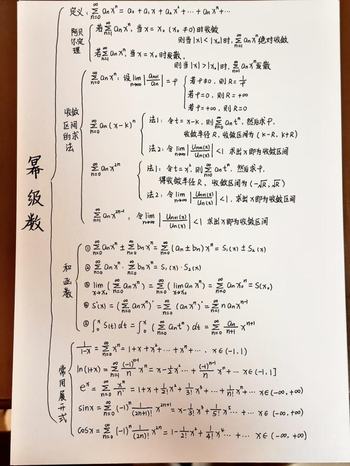 幂级数
定义: \sum_{n=0}^{∞} a_n x^n = a_0 + a_1 x + a_2 x^2 + … + a_n x^n + …
阿贝尔定理
若 \sum_{n=0}^{∞} a_n x^n, 当 x = x_0 (x_0 ≠ 0) 时收敛
则当 |x| < |x_0| 时, \sum_{n=0}^{∞} a_n x^n 绝对收敛
若 \sum_{n=0}^{∞} a_n x^n, 当 x = x_0 时发散,
则当 |x| > |x_0| 时, \sum_{n=0}^{∞} a_n x^n 发散
收敛区间的求法
\sum_{n=0}^{∞} a_n x^n, 设 \lim_{n→∞} |\frac{a_{n+1}}{a_n}| = ρ
若 ρ ≠ 0, 则 R = \frac{1}{ρ}
若 ρ = 0, 则 R = +∞
若 ρ = +∞, 则 R = 0
\sum_{n=0}^{∞} a_n (x-k)^n
法1: 令 t = x-k, 则 \sum_{n=0}^{∞} a_n t^n, 然后求ρ.
收敛半径 R, 收敛区间为 (k-R, k+R)
法2: 令 \lim_{n→∞} |\frac{U_{n+1}(x)}{U_n(x)}| < 1 求出 x 即为收敛区间
\sum_{n=0}^{∞} a_n x^{2n}
法1: 令 t = x^2, 则 \sum_{n=0}^{∞} a_n t^n, 然后求ρ.
得收敛半径 R, 收敛区间为 (-\sqrt{R}, \sqrt{R})
法2: 令 \lim_{n→∞} |\frac{U_{n+1}(x)}{U_n(x)}| < 1. 求出 x 即为收敛区间
\sum_{n=1}^{∞} a_n x^{2n-1}: 令 \lim_{n→∞} |\frac{U_{n+1}(x)}{U_n(x)}| < 1 求出 x 即为收敛区间
和函数
① \sum_{n=0}^{∞} a_n x^n ± \sum_{n=0}^{∞} b_n x^n = \sum_{n=0}^{∞} (a_n ± b_n) x^n = S_1(x) ± S_2(x)
② \sum_{n=0}^{∞} a_n x^n · \sum_{n=0}^{∞} b_n x^n = S_1(x) · S_2(x)
③ \lim_{x→x_0} (\sum_{n=0}^{∞} a_n x^n) = \sum_{n=0}^{∞} (\lim_{x→x_0} a_n x^n) = \sum_{n=0}^{∞} a_n x_0^n = S(x_0)
④ S'(x) = (\sum_{n=0}^{∞} a_n x^n)' = \sum_{n=0}^{∞} (a_n x^n)' = \sum_{n=1}^{∞} n a_n x^{n-1}
⑤ \int_0^x S(t) dt = \int_0^x (\sum_{n=0}^{∞} a_n t^n) dt = \sum_{n=0}^{∞} \frac{a_n}{n+1} x^{n+1}
常用展开式
\frac{1}{1-x} = \sum_{n=0}^{∞} x^n = 1 + x + x^2 + … + x^n + …, x∈(-1,1)
ln(1+x) = \sum_{n=1}^{∞} \frac{(-1)^{n-1}}{n} x^n = x - \frac{1}{2}x^2 … + \frac{(-1)^{n-1}}{n} x^n + … x∈(-1,1]
e^x = \sum_{n=0}^{∞} \frac{x^n}{n!} = 1 + x + \frac{1}{2!}x^2 + \frac{1}{3!}x^3 + … + \frac{1}{n!}x^n + … x∈(-∞,+∞)
sinx = \sum_{n=0}^{∞} (-1)^n \frac{1}{(2n+1)!} x^{2n+1} = x - \frac{1}{3!}x^3 + \frac{1}{5!}x^5 … + … x∈(-∞,+∞)
cosx = \sum_{n=0}^{∞} (-1)^n \frac{1}{(2n)!} x^{2n} = 1 - \frac{1}{2!}x^2 + \frac{1}{4!}x^4 … + … x∈(-∞,+∞)